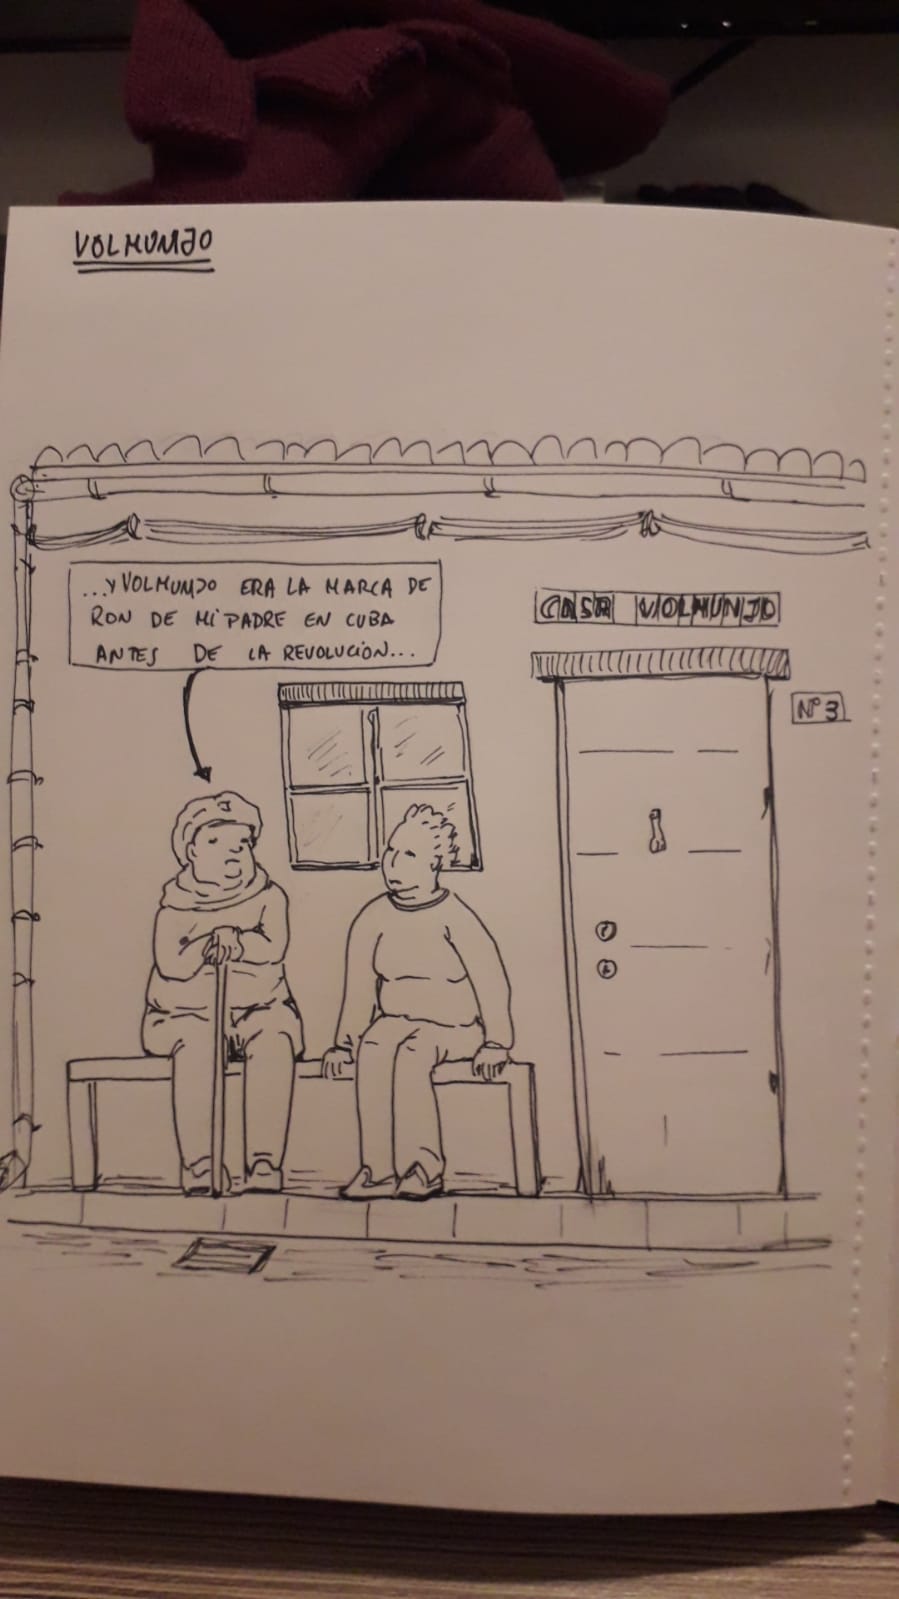 VOLMUNJO
...Y VOLMUNJO ERA LA MARCA DE
RON DE MI PADRE EN CUBA
ANTES DE LA REVOLUCIÓN...
CASA VOLMUNJO
Nº 3